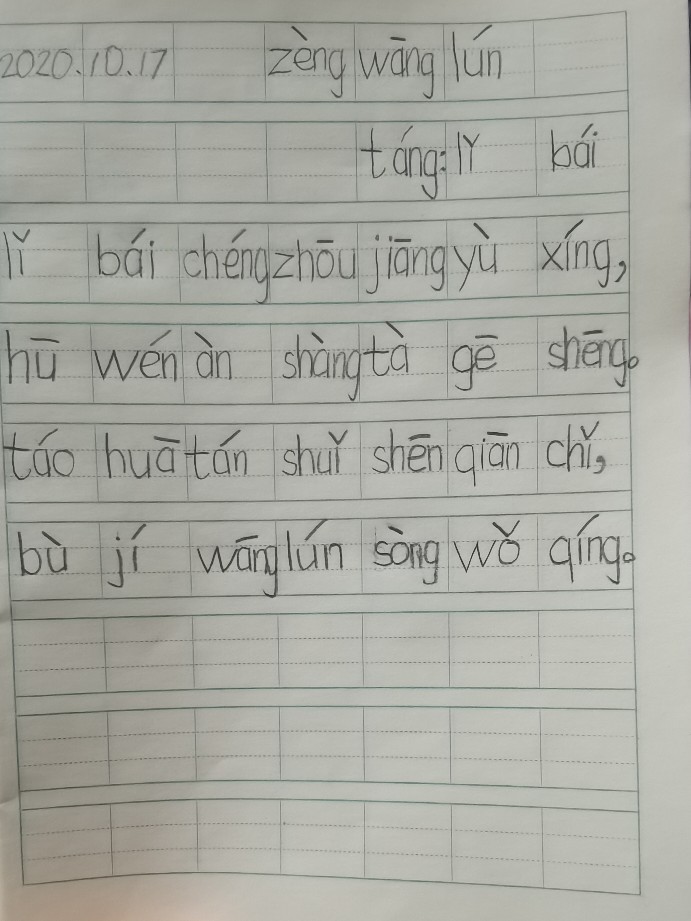 2020.10.17 zèng wāng lún
táng: lǐ bái
lǐ bái chéng zhōu jiāng yù xíng,
hū wén àn shàng tà gē shēng。
táo huā tán shuǐ shēn qiān chǐ,
bù jí wāng lún sòng wǒ qíng。